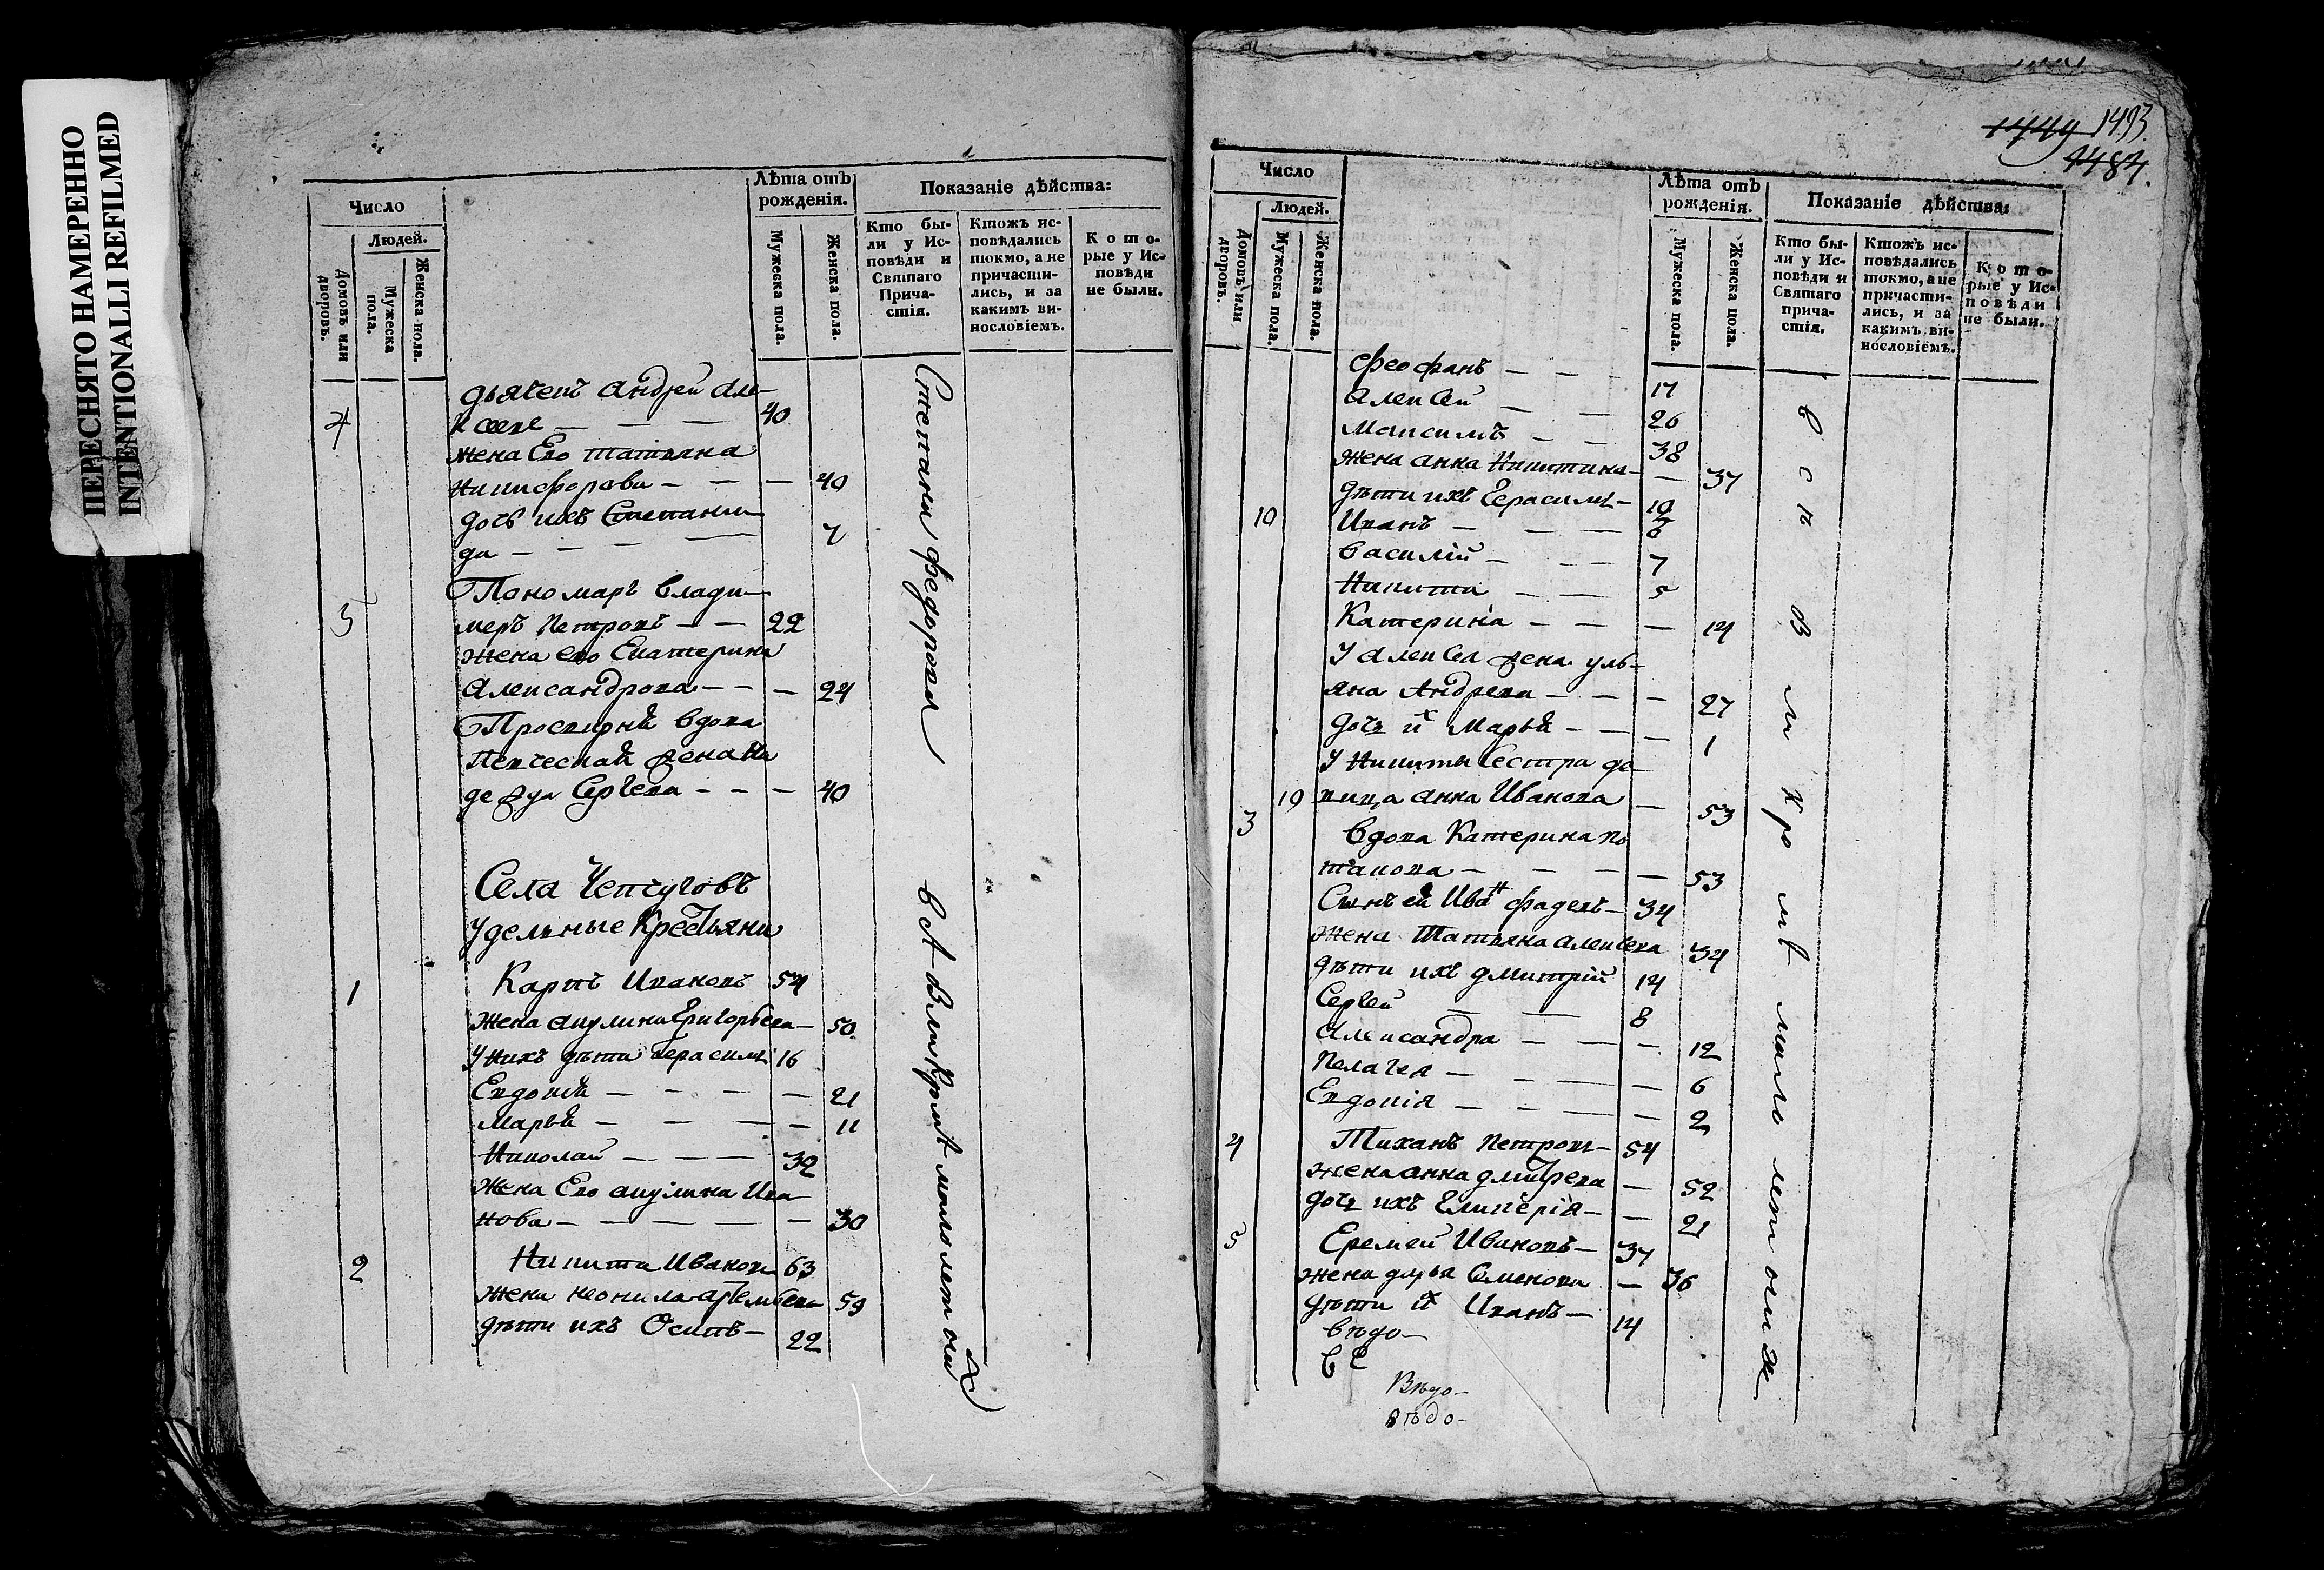 ПЕРЕСНЯТО НАМЕРЕННО
INTENTIONALLI REFILMED
Число
Людей.
Домовъ или дворовъ.
Мужеска пола.
Женска пола.
Лѣта отъ рожденія.
Мужеска пола.
Женска пола.
Показаніе дѣйства:
Кто бы-
ли у Ис-
повѣди и
Святаго
Прича-
стія.
Ктожъ ис-
повѣдались
токмо, а не
причасти-
лись, и за
какимъ ви-
нословіемъ.
Кото-
рые у Ис-
повѣди
не были.
дьячекъ андрей але-
4 40
жена Его татьяна
Никифорова — — — 40
дочь ихъ Степани-
да — — — — 7
Пономарь влади-
5 меръ Петровъ — — 22
жена его Екатерина
Александрова — — — 24
вдова
жена На
дежда Сергѣева — — — 40
Села Чепчуговъ
Удельные Крестьяни
1 Карпъ Ивановъ 54
жена акулина Григорьева — 50
У нихъ дѣти Герасимъ 16
Евдокия — — — — 21
Марья — — — — 11
Николай — — — 32
жена Его акулина Ива
нова — — — — — 30
2 Никита Ивановъ 63
жена неонила артемьева 59
дѣти ихъ Осипъ — 22
Степани федоровы
все в лики кромѣ малолетних
1479 1493
1484.
Число
Людей.
Домовъ или дворовъ.
Мужеска пола.
Женска пола.
Лѣта отъ рожденія.
Мужеска пола.
Женска пола.
Показаніе дѣйства:
Кто бы-
ли у Ис-
повѣди и
Святаго
прича-
стія.
Ктожъ ис-
повѣдались
токмо, а не
причасти-
лись, и за
какимъ ви-
нословіемъ.
Кото-
рые у Ис-
повѣди
не были.
феофанъ — — — 17
Алексей — — 26
Максимъ — — 38
жена анна Никитина — — 37
дѣти ихъ Герасимъ — 10
10 Иванъ — — 8
Василій — — — 7
Никита — — 5
Катерина — — — 14
У Алексея жена уль-
яна Андрева — — — 27
дочь их Марья — — — 1
У Никиты Сестра де-
10 вица анна Иванова — 53
3 вдова Катерина по
тапова — — — — 53
Сынъ ей Иван фадевъ — 34
жена Татьяна алексева 34
дѣти ихъ дмитрій 14
Сергей — — 8
Александра — — — 12
Пелагея — — — — 6
Евдокія — — — — 2
4 Тиханъ Петровъ — 54
жена анна дмитрева — 52
дочь ихъ Гликерія — — 21
5 Еремей Ивановъ — 37
жена дарья Семенова — 36
дѣти их Иванъ — 14
Вѣдо-
Вѣдо-
вѣдо-
кромѣ малолетних